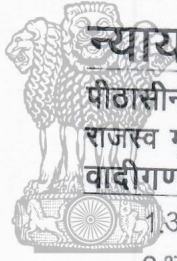 न्याय
पीठासीन
राजस्व म
वादीगण
1.3